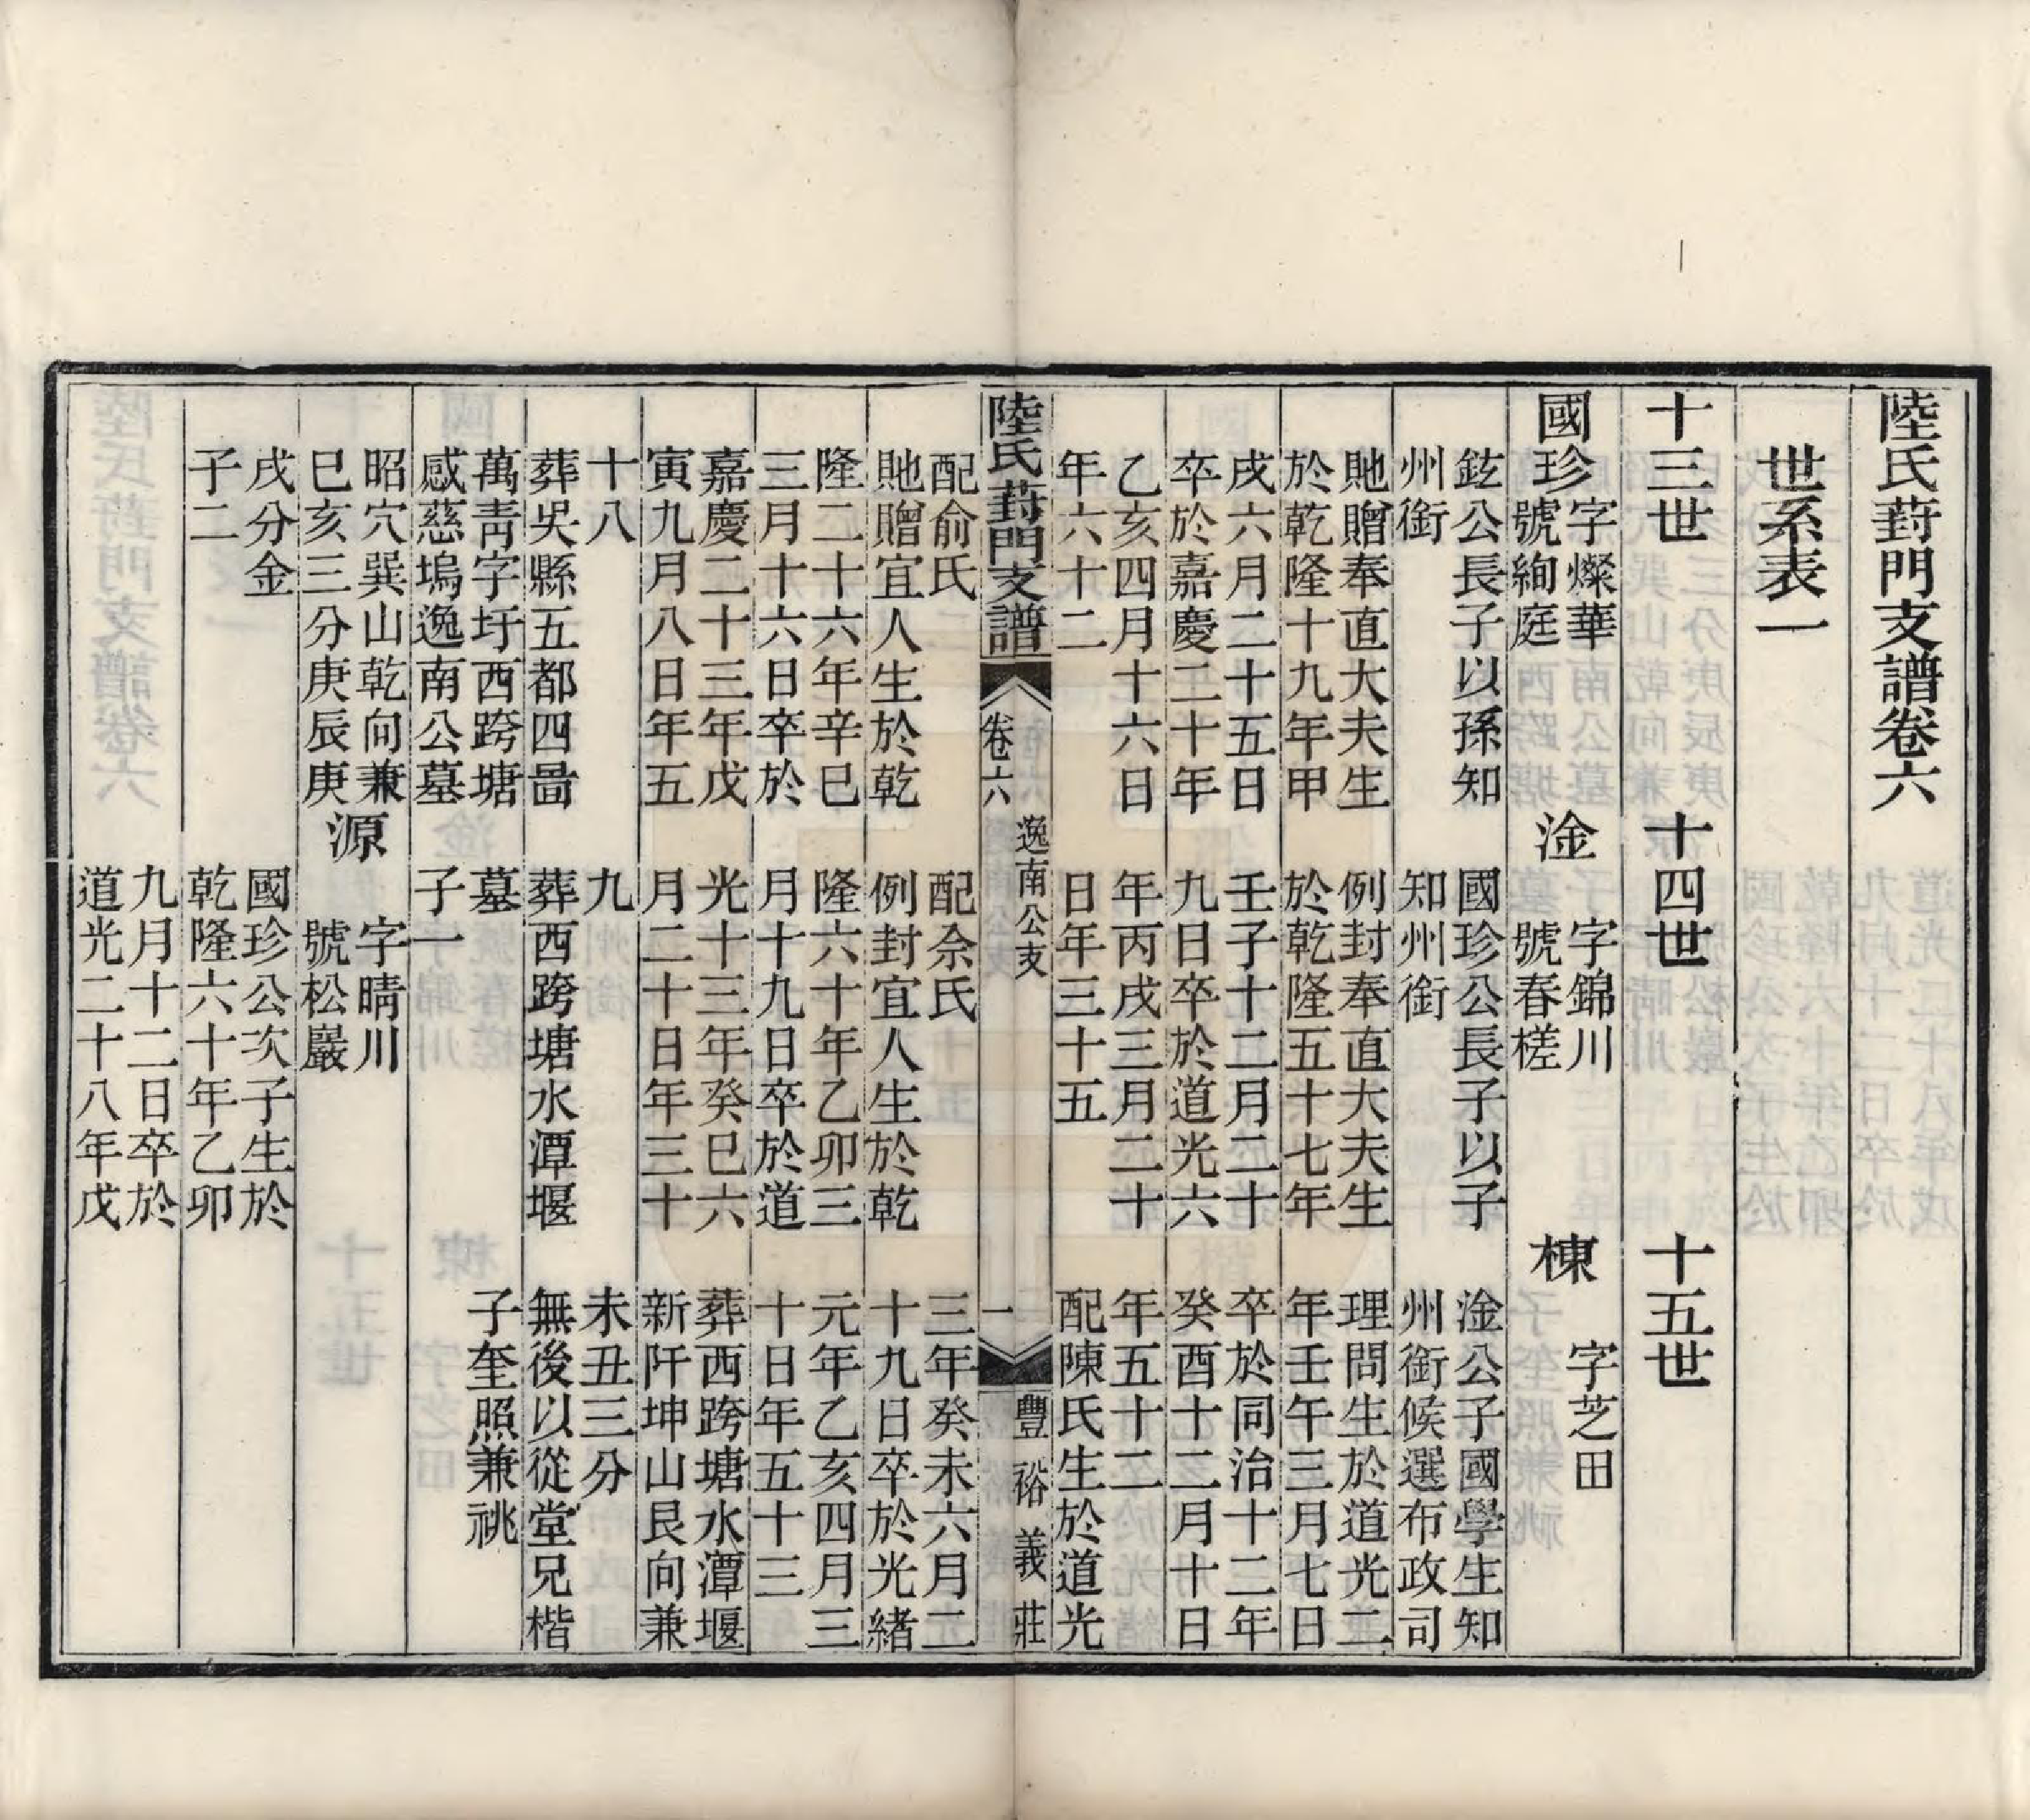 陸氏葑門支譜卷六
世系表一
十三世
國珍
字燦華
號絢庭
鉉公長子以孫知
州銜
貤贈奉直大夫生
於乾隆十九年甲
戌六月二十五日
卒於嘉慶二十年
乙亥四月十六日
年六十二
配俞氏
貤贈宜人生於乾
隆二十六年辛巳
三月十六日卒於
嘉慶二十三年戊
寅九月八日年五
十八
葬吳縣五都四啚
萬青字圩西跨塘
感慈塢逸南公墓
昭穴巽山乾向兼
巳亥三分庚辰庚
戌分金
子二
十四世
淦
字錦川
號春槎
國珍公長子以子
知州銜
例封奉直大夫生
於乾隆五十七年
壬子十二月二十
九日卒於道光六
年丙戌三月二十
日年三十五
配佘氏
例封宜人生於乾
隆六十年乙卯三
月十九日卒於道
光十三年癸巳六
月二十日年三十
九
葬西跨塘水潭堰
墓
子一
源
字晴川
號松巖
國珍公次子生於
乾隆六十年乙卯
九月十二日卒於
道光二十八年戊
十五世
棟
字芝田
淦公子國學生知
州銜候選布政司
理問生於道光二
年壬午三月七日
卒於同治十二年
癸酉十二月十日
年五十二
配陳氏生於道光
三年癸未六月二
十九日卒於光緒
元年乙亥四月三
十日年五十三
葬西跨塘水潭堰
新阡坤山艮向兼
未丑三分
無後以從堂兄楷
子奎照兼祧
陸氏葑門支譜
卷六
逸南公支
一
豐裕義莊